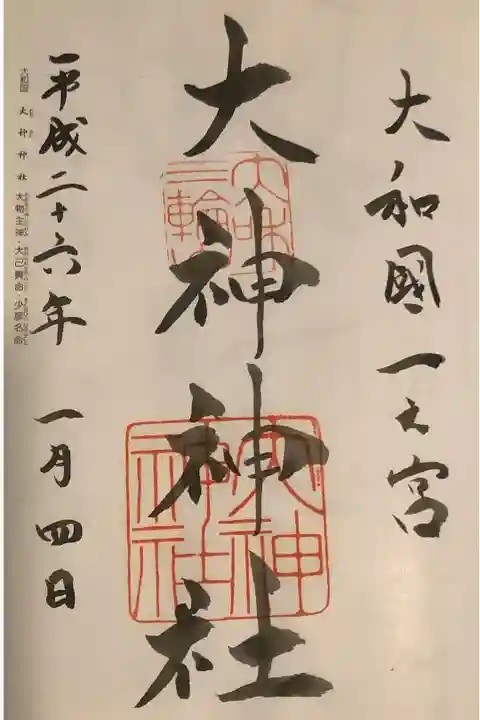 大和國一之宮
大神神社
大和
三輪
大神
神社
平成二十六年 一月四日
大和国 大神神社 大物主神・大己貴命・少彦名命